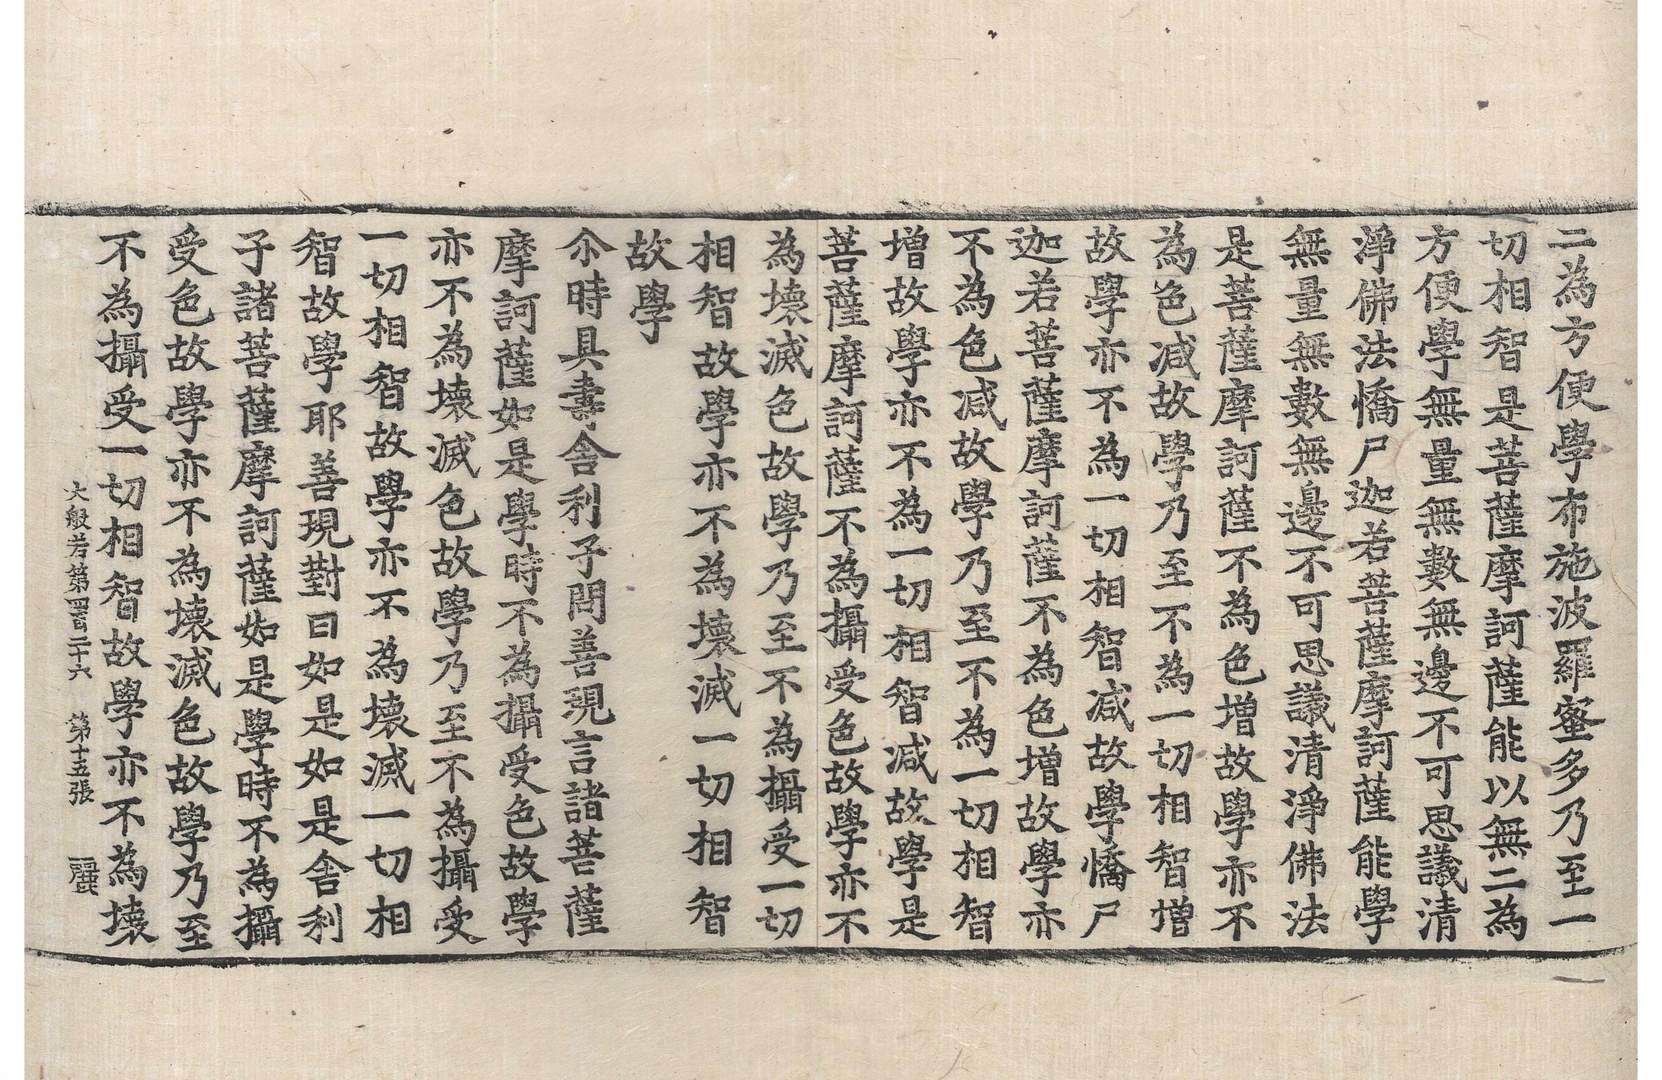 二為方便學布施波羅蜜多乃至一
切相智是菩薩摩訶薩能以無二為
方便學無量無數無邊不可思議清
淨佛法憍尸迦若菩薩摩訶薩能學
無量無數無邊不可思議清淨佛法
是菩薩摩訶薩不為色增故學亦不
為色減故學乃至不為一切相智增
故學亦不為一切相智減故學憍尸
迦若菩薩摩訶薩不為色增故學亦
不為色減故學乃至不為一切相智
增故學亦不為一切相智減故學是
菩薩摩訶薩不為攝受色故學亦不
為壞滅色故學乃至不為攝受一切
相智故學亦不為壞滅一切相智
故學
尒時具壽舍利子問善現言諸菩薩
摩訶薩如是學時不為攝受色故學
亦不為壞滅色故學乃至不為攝受
一切相智故學亦不為壞滅一切相
智故學耶善現對曰如是如是舍利
子諸菩薩摩訶薩如是學時不為攝
受色故學亦不為壞滅色故學乃至
不為攝受一切相智故學亦不為壞
大般若第四百二十六 第十五張 麗